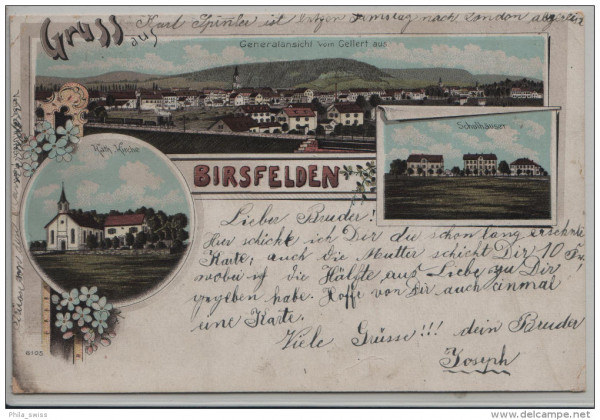 Gruss aus
Karl Spinler ist letzten Samstag nach London
Generalansicht vom Gellert aus
Schulhäuser
Kath. Kirche
BIRSFELDEN
Lieber Bruder!
Hier schicke ich Dir du schon lang ersehnte
Karte, auch die Mutter schickt Dir 10 Fr.
wobei ig die Hälfte aus Liebe zu Dir
gegeben habe. Hoffe von Dir auch einmal
eine Karte.
Viele Grüsse!!! dein Bruder
Joseph
6105
Phila_swiss
delcampe.net